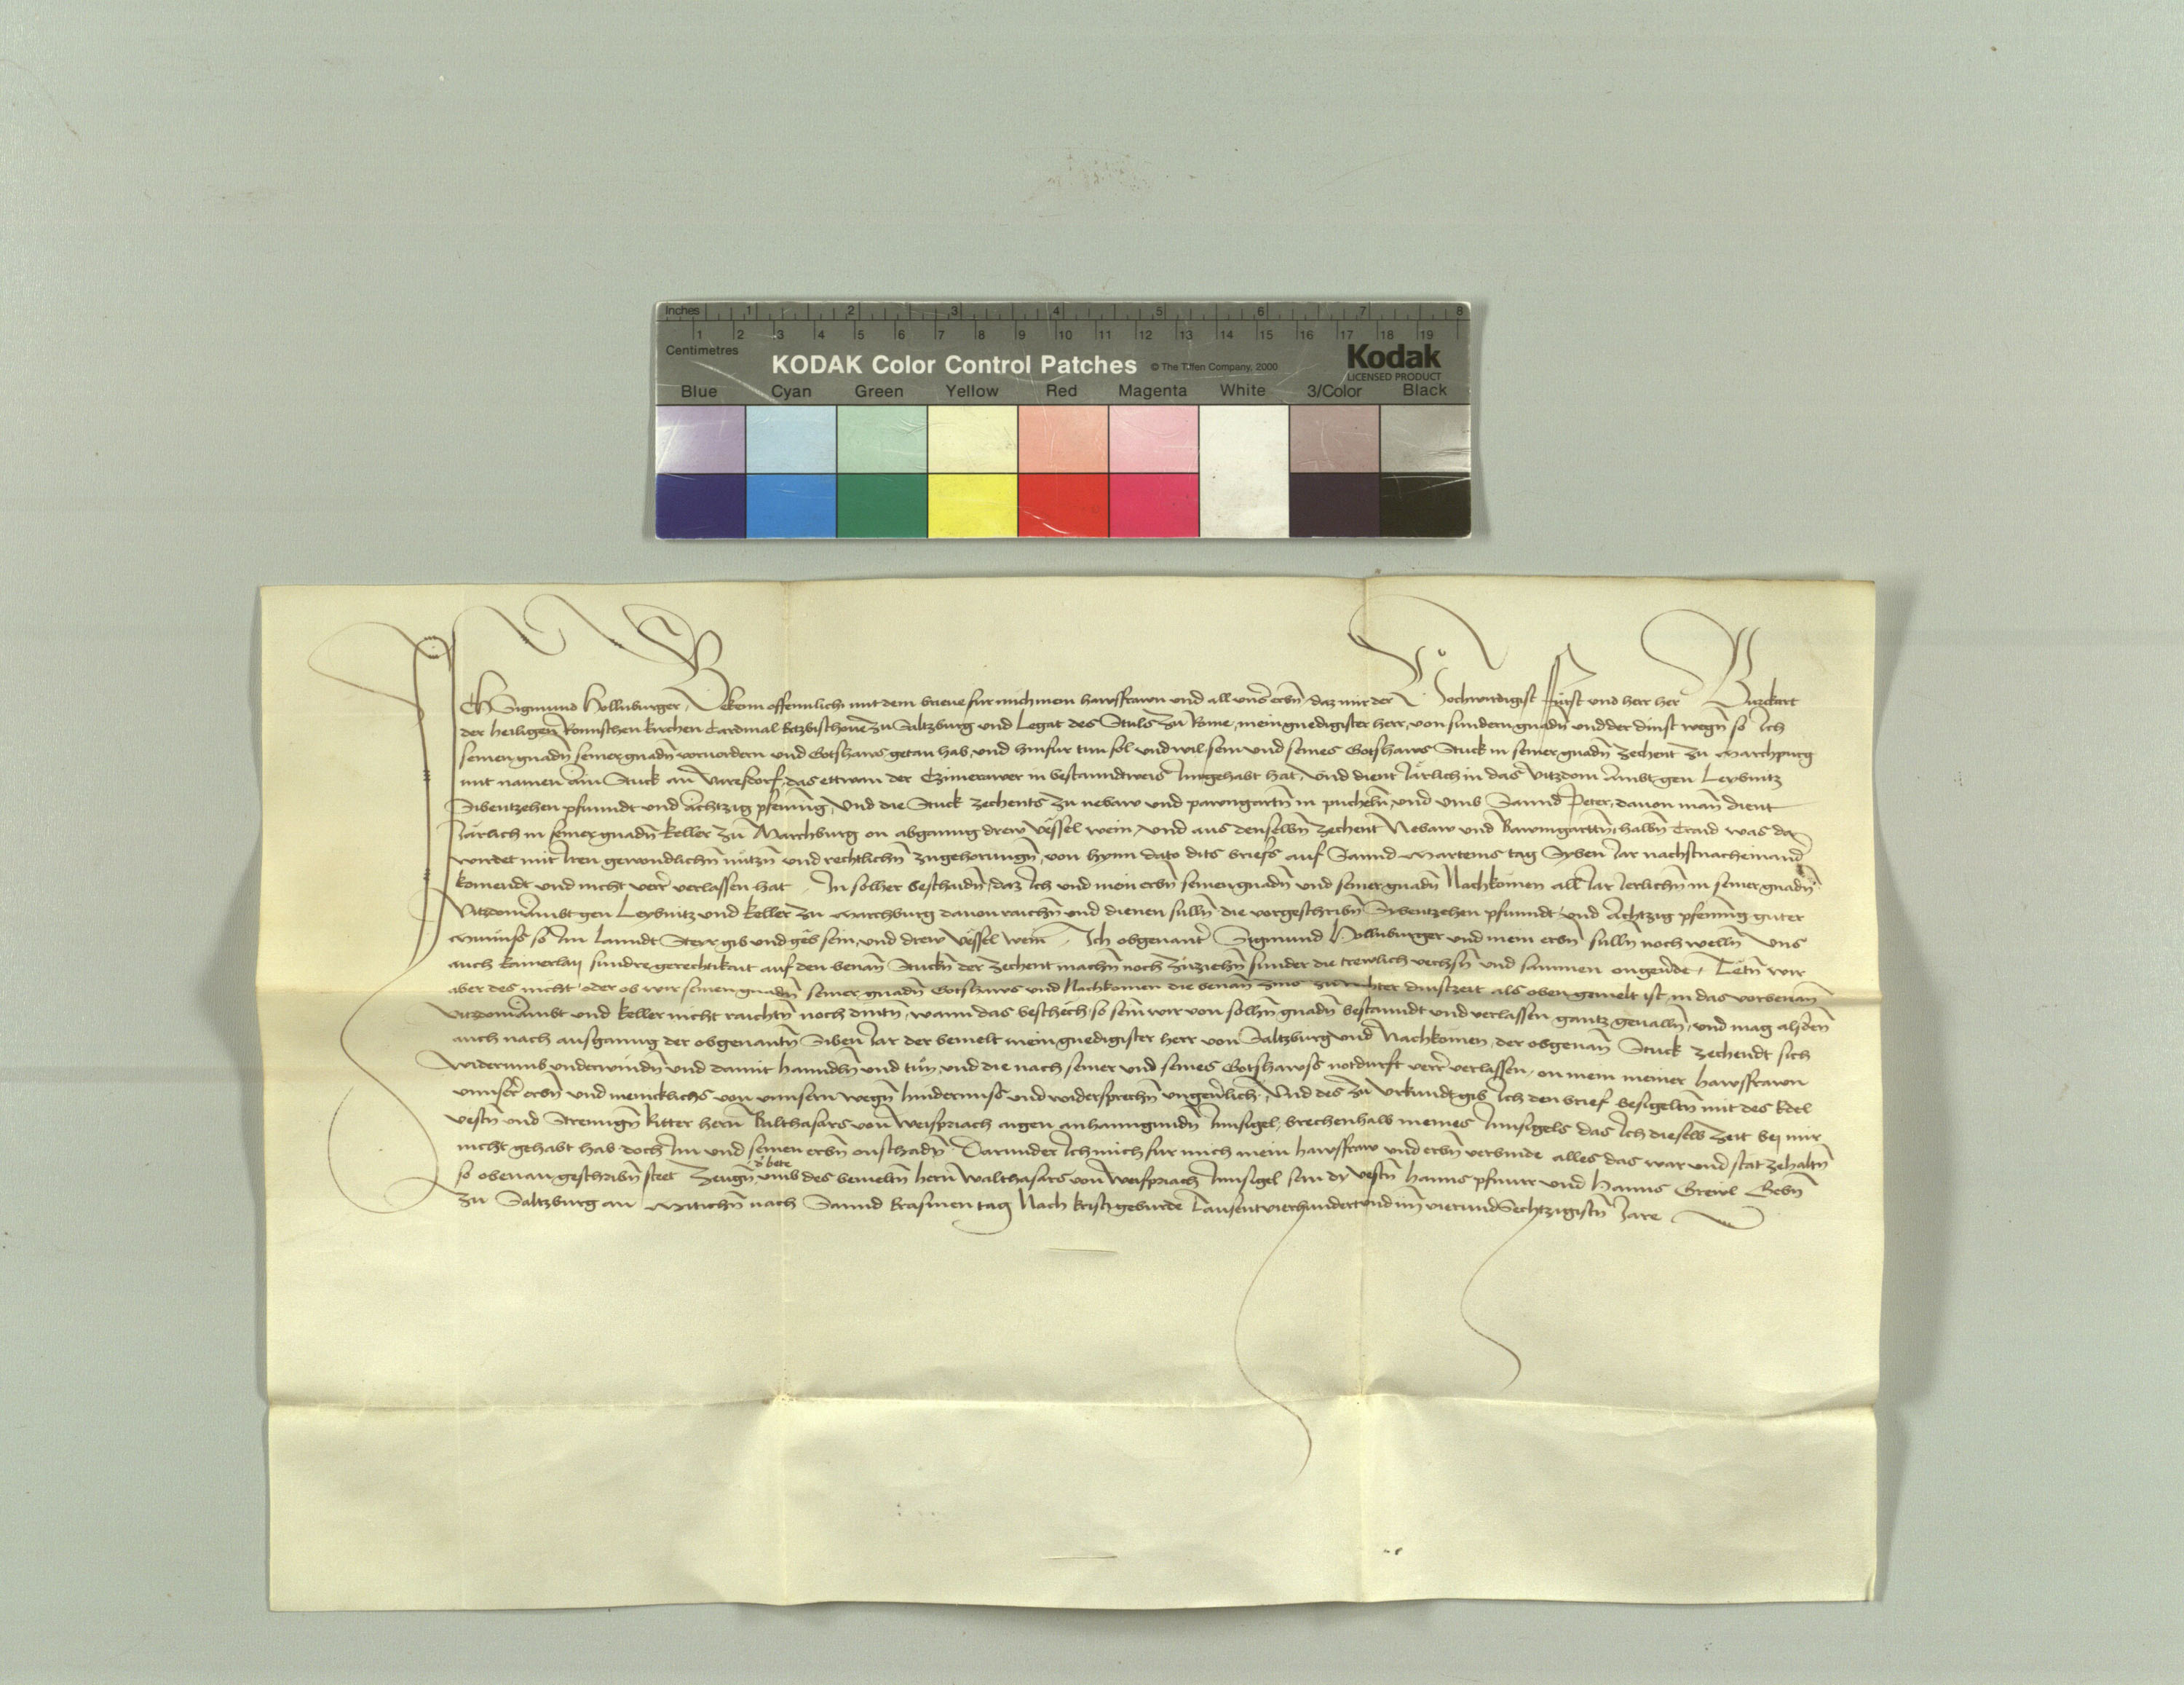 Inches 1 2 3 4 5 6 7 8
1 2 3 4 5 6 7 8 9 10 11 12 13 14 15 16 17 18 19
Centimetres
KODAK Color Control Patches © The Tiffen Company, 2000 Kodak
LICENSED PRODUCT
Blue Cyan Green Yellow Red Magenta White 3/Color Black
Ich Sigmund Hollnburger, Bekenn offennlich mit dem brieue fur mich mein hawsfrawn und all unser erbñ, daz mir der Hochwirdigist Fürst und herr her Burckart
der heiligen Romischen kirchen Cardinal Ertzbischoue zu Saltzburg und Legat des Stuls zu Rome, mein gnedigister herr, von sundern gnadñ und der dinst wegñ so Ich
seinen gnadñ seiner gnadñ voruordern und Gotshaws getan hab, und hinfur tun sol und wil, sein und seines Gotshaws Stuck in seiner gnadñ zehent zu Marchpurg
mit namen ain Stuck an das ettwan der in bestanndtweis Inngehabt hat, und dient Järlich in das Vitzdom Ambt gen Leybnitz
Sibentzehen pfunndt und Achtzig pfening, Und die Stuck zehents zu nebaw und pawngartñ in puchelñ und umb Sannd Peter, dauon man dient
Järlich in seiner gnadñ keller zu Marchburg on abganng drew Vessel wein, und aus denselbñ zehent Nebaw und Bawmgarttñ halbñ Traid was der
wirdet mit Iren gewondlichñ nutzñ und rechtlichñ zugehorungñ, von hynn dato dits briefs auf Sannd Marteins tag Syben Jar nachstnacheinand
komendt und nicht verr verlassen hat. In solher beschaidñ, daz Ich und mein erbñ seinen gnadñ und seiner gnadñ Nachkomen all Jar Jerlichñ in seiner gnadñ
Vitzdomambt gen Leybnitz und keller zu Marchburg dauon raichñ und dienen sullñ die vorgeschribñ Sibentzehen pfunndt und Achtzig pfening guter
Munnss so Im lanndt Steyr gib und geb sein, und drew Vessel wein. Ich obgenant Sigmund Hollnburger und mein erbñ sullñ noch wellñ uns
auch kainerlay sundre gerechtikait auf den benañ Stuckñ der zehent machñ noch zuziehñ sunder die trewlich vechsñ und sammen ongeuerde, Tetñ wir
aber des nicht oder ob wir seinen gnadñ seiner gnadñ Gotshaws und Nachkomen die benañ zins zu rechter dinstzeit als oben gemelt ist, in das vorbenañ
Vitzdomambt und keller nicht raichtñ noch dintñ, wann das beschech, so sein wir von solhñ gnadñ bestanndt und verlassen gantz geuallñ, und mag alsden
auch nach ausganng der obgenantñ Siben Jar der bemelt mein gnedigister herr von Saltzburg und Nachkomen, der obgenañ Stuck zehendt sich
widerumb underwindñ und damit hanndlñ und tun, und die nach seiner und seines Gotshawss notdurft verr verlassen, on mein meiner hawsfrawn
unnser erbñ und menicklichs von unnsern wegñ hindernuss und widersprechñ ungeuerlich. Und des zu urkundt gib Ich den brief besigeltñ mit des Edel
vestñ und Strenngñ Ritter herñ Balthasars von Weispriach aigen anhanngundñ Innsigel, brechenhalb meines Innsigels das Ich dieselb zeit bey mir
nicht gehabt hab doch Im und seinen erbñ onschadñ Darunder Ich mich fur mich mein hawsfraw und erbñ verbinde alles das war und stat zehaltñ
so oben angeschribñ steet Zeugñ d bete umb des bemeltñ herñ Walthasars von Weispriach Innsigel sein dy vestñ Hanns pfnurr und Hanns Greirl Gebñ
zu Saltzburg an Mitichñ nach Sannd Erasmen tag Nach kristi geburde Tausent vierhundert und im vierundSechtzigistñ Jare